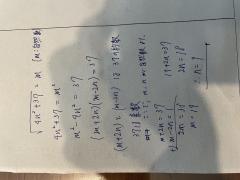 √4n²+37 = m (m:自然数)
4n²+37 = m²
m²-4n² = 37
(m+2n)(m-2n) = 37
(m+2n)(m-2n) は37の約数
37は素数
m+2n=37
m-2n=1
2m=38
m=19
19+2n=37
2n=18
∴ n=9